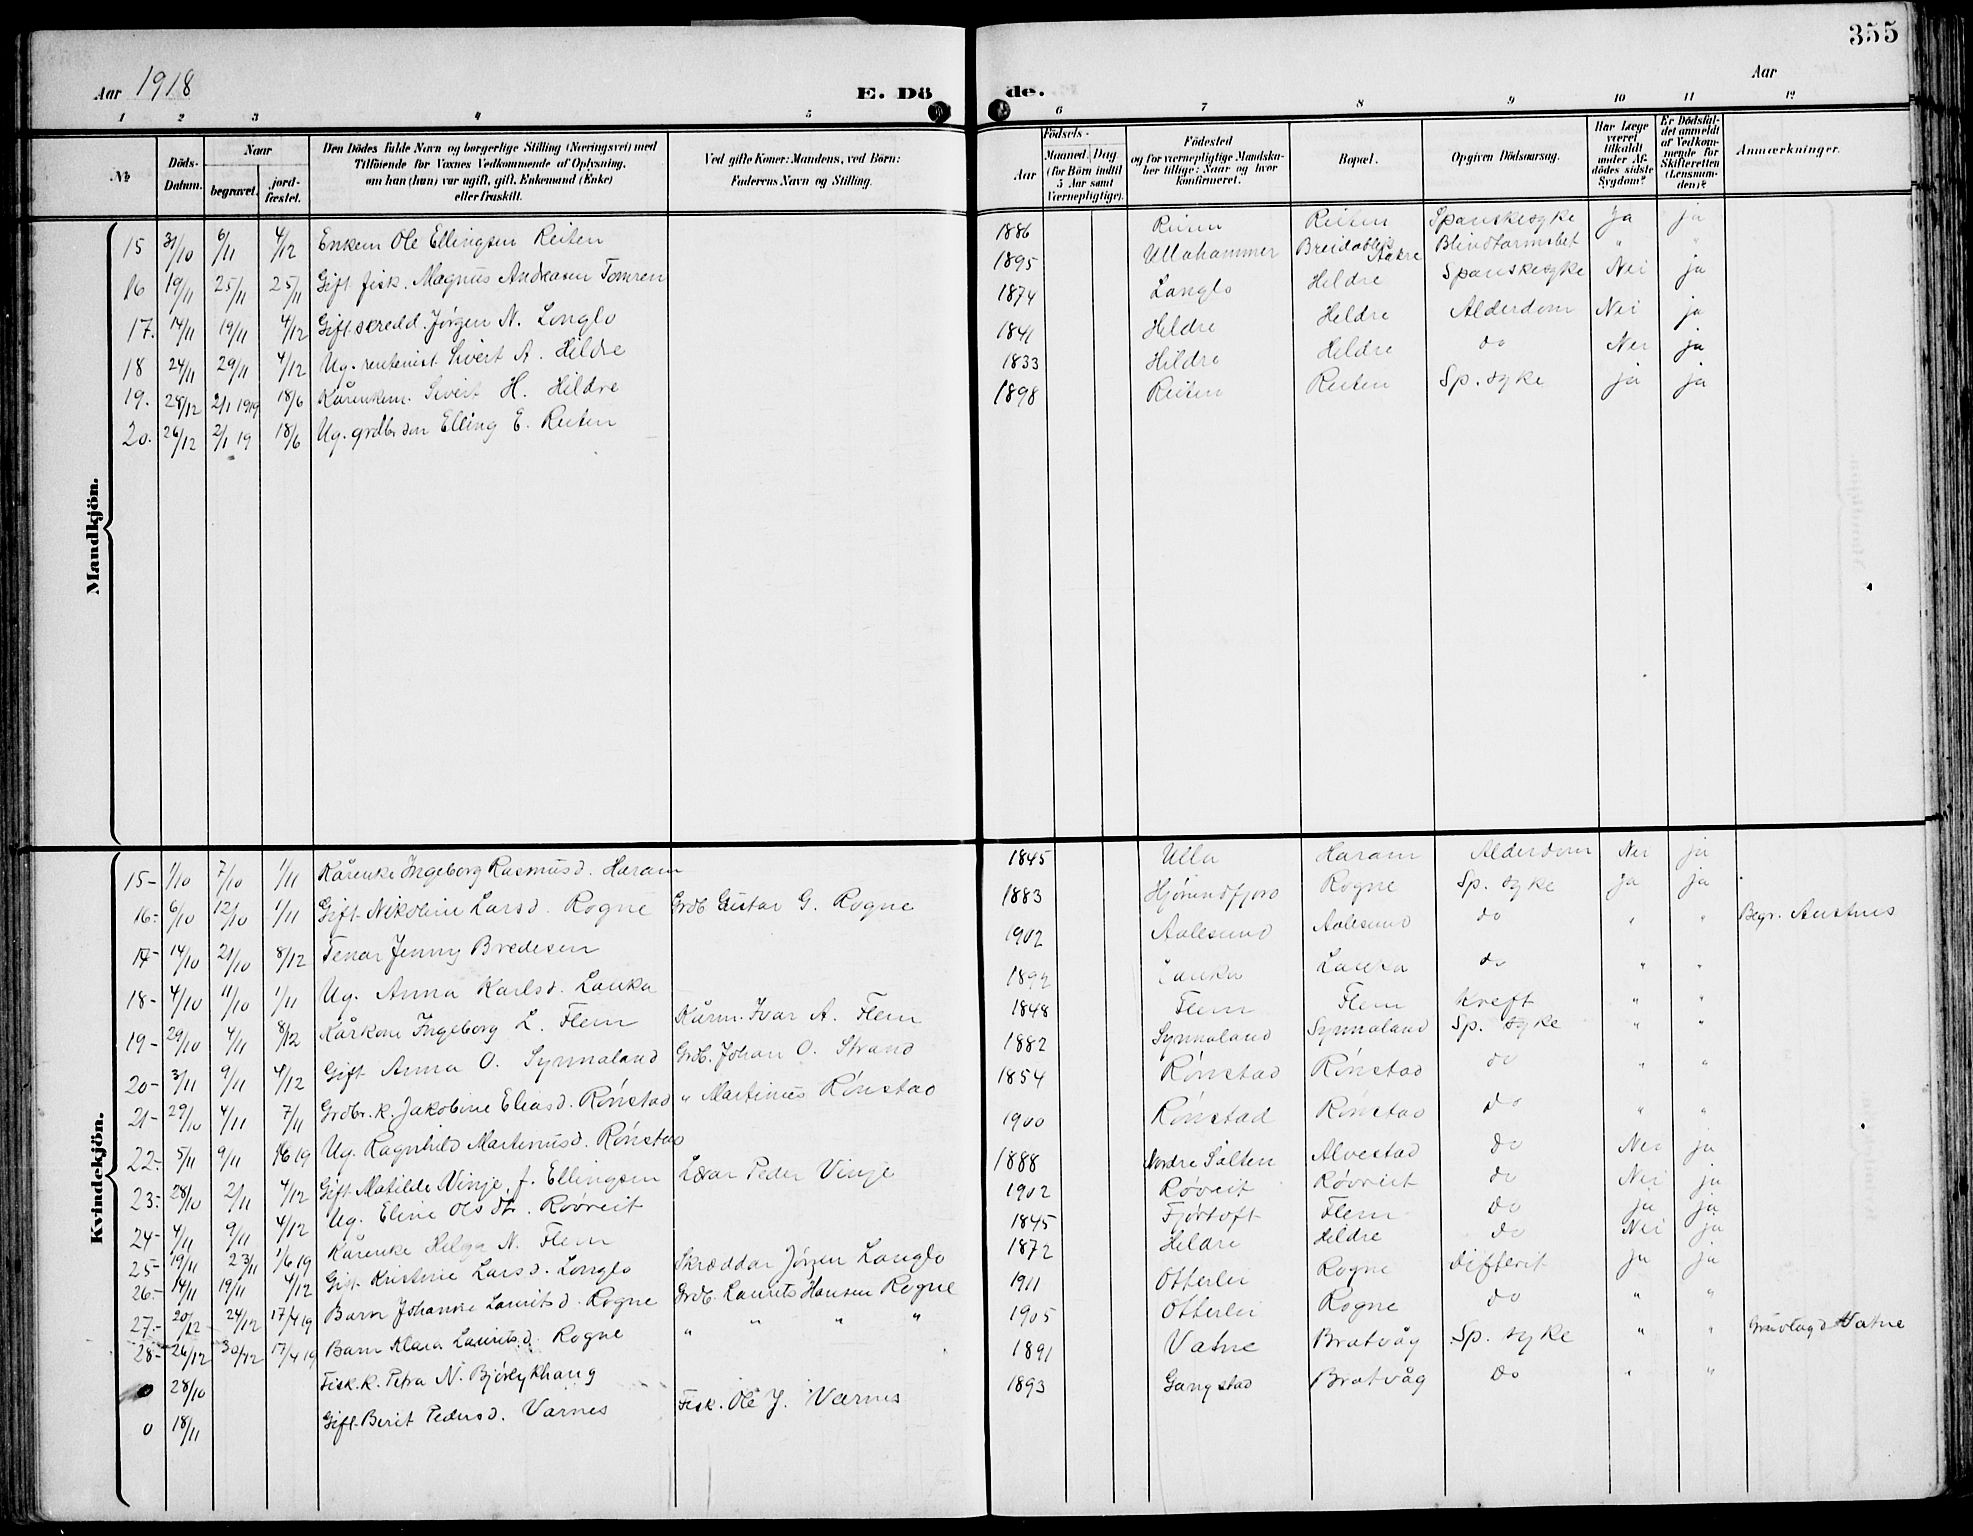 355
Aar 1918
E. Dö
de.
Aar
1 2 3 4 5 6 7 8 9 10 11 12
№
Döds-Datum.
Naar
begravet.
jord-fæstet.
Den Dödes fulde Navn og borgerlige Stilling (Næringsvei) med
Tilföiende for Voxnes Vedkommende af Oplysning,
om han (hun) var ugift, gift, Enkemand (Enke)
eller fraskilt.
Ved gifte Koner: Mandens, ved Börn:
Faderens Navn og Stilling.
Födsels-
Aar
Maaned. Dag
(for Börn indtil
5 Aar samt
Værnepligtige).
Födested
og for værnepligtige Mandskaber tillige: Naar og hvor
konfirmeret.
Bopæl.
Opgiven Dödsaarsag.
Har Læge
været
tilkaldt
under Afdödes sidste
Sygdom?
Er Dödsfaldet anmeldt
af Vedkommende for
Skifteretten
(Lensmanden)?
Anmærkninger.
Mandkjön.
15 31/10 6/11 4/12 Enkem Ole Ellingsen Reiten 1886 Reiten Reiten Spanskesyke Ja ja
16 19/11 25/11 25/11 Gift fisk. Magnus Andreasen Tomren 1895 Ullahammer Breidablik Aakre Blindtarmsbet " "
17. 14/11 19/11 4/12 Gift skredd. Jørgen N. Longlo 1874 Langlo Hildre Spanskesyke Nei ja
18 24/11 29/11 4/12 Ug. rentenist Sivert A. Hildre 1841 Hildre Hildre Alderdom Nei ja
19. 28/12 2/1 1919 18/6 Kårenkem. Sivert H. Hildre 1833 Hildre Hildre do Nei ja
20. 26/12 2/1 19 18/6 Ug. grdbr søn Elling E. Reiten 1898 Reiten Reiten Sp. syke ja ja
Kvindekjön.
15- 1/10 7/10 1/11 Kårenke Ingeborg Rasmusd. Haram 1845 Ulla Haram Alderdom Nei ja
16- 6/10 12/10 1/11 Gift Nikoline Larsd. Rogne Grdb. Gustav G. Rogne 1883 Hjørundfjord Rogne Sp. syke ja ja
17- 14/10 21/10 8/12 Tenar Jenny Bredesen 1902 Aalesund Aalesund do " " Begr. Austnes
18- 4/10 11/10 1/11 Ug. Anna Karlsd. Lauka 1892 Lauka Lauka do " "
19- 29/10 4/11 8/12 Kårkone Ingeborg L. Flem Kårm. Ivar A. Flem 1848 Flem Flem Kreft " "
20- 3/11 9/11 4/12 Gift Anna O. Synnaland Grdb. Johan O. Strand 1882 Synnaland Synnaland Sp. syke " "
21- 29/10 4/11 7/11 Grdbr. k. Jakobine Eliasd. Rönstad " Martinus Rönstad 1854 Rönstad Rönstad do " "
22- 5/11 9/11 1/6 19 Ug. Ragnhild Martinusd. Rönstad 1900 Rönstad Rönstad do " "
23- 28/10 2/11 4/12 Gift Matilde Vinje, f. Ellingsen Lærar Peder Vinje 1888 Nordre Salten Alvestad do Nei ja
24- 4/11 9/11 4/12 Ug. Eline Olsdtr. Røvreit 1902 Røvreit Røvreit do Nei ja
25- 19/11 23/11 1/6 19 Kårenke Helga N. Flem 1845 Fjørtoft Flem do ja ja
26- 14/11 19/11 4/12 Gift Kristine Larsd. Longlo Skræddar Jørgen Langlo 1872 Hildre Hildre do Nei ja
27- 20/12 24/12 17/4 19 Barn Johanne Lauritsd. Rogne Grdb. Laurits Hansen Rogne 1911 Otterlei Rogne Difterit ja ja
28- 26/12 30/12 17/4 19 Barn Klara Lauritsd. Rogne " " " " 1905 Otterlei Rogne do " "
0 28/10 Fisk. k. Petra N. Bjørlykhaug 1891 Vatne Bratvåg Sp. syke " " Vatne
0 18/11 Gift Berit Pedersd. Varnes Fisk. Ole J. Værnes 1893 Gangstad Bratvåg Do " "